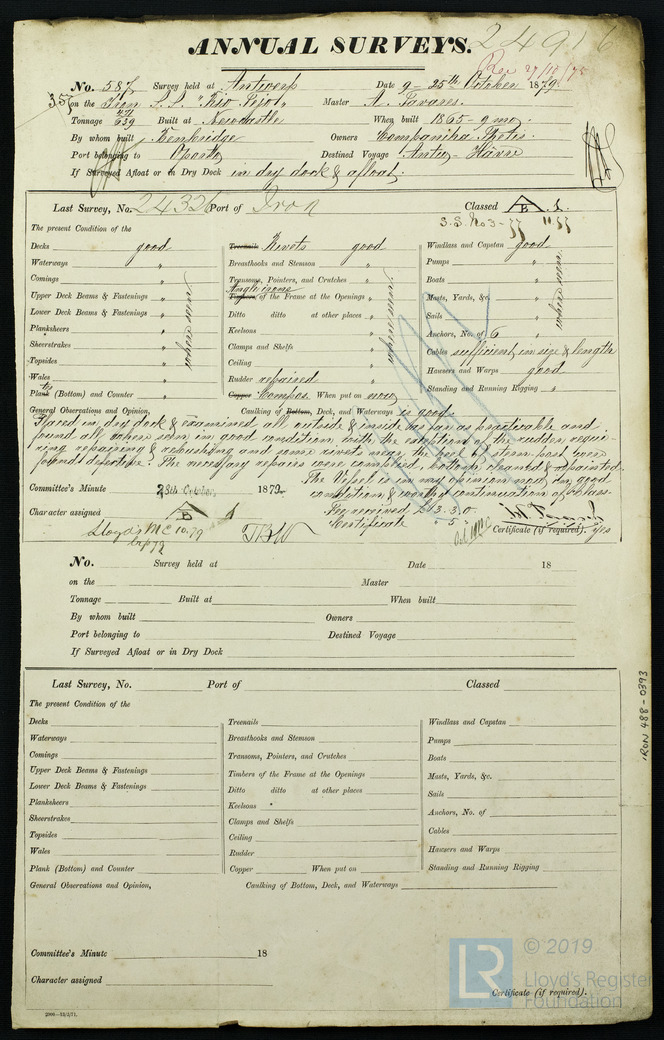 ANNUAL SURVEYS. 24916
Rec 27/10/79
No. 587 Survey held at Antwerp Date 9 - 25th October 1879.
on the Iron S.S. Master A. Tavares.
Tonnage 639 Built at Newcastle When built 1865 - 9 mo.
By whom built Owners Companhia
Port belonging to Oporto Destined Voyage Antw - Hâvre
If Surveyed Afloat or in Dry Dock in dry dock & afloat.
Last Survey, No. 24326 Port of Iron Classed A B .1.
S.S. No 3 - 77 11 77
The present Condition of the
Decks good Treenails Rivets good Windlass and Capstan good
Waterways " Breasthooks and Stemson " Pumps "
Comings " Transoms, Pointers, and Crutches " Boats "
Upper Deck Beams & Fastenings " Angle irons Timbers of the Frame at the Openings " Masts, Yards, &c. "
Lower Deck Beams & Fastenings " Ditto ditto at other places " Sails "
Planksheers " Keelsons " Anchors, No. of 6 "
Sheerstrakes " Clamps and Shelfs " Cables sufficient in size & length
Topsides " Ceiling " Hawsers and Warps good
Wales " Rudder repaired Standing and Running Rigging "
Plank (Bottom) and Counter " Copper Compos. When put on now
where seen where seen where seen
General Observations and Opinion, Caulking of Bottom, Deck, and Waterways is good.
Placed in dry dock & examined all outside & inside as far as practicable and
found all where seen in good condition with the exception of the rudder requi-
ring repairing & rebushing and some rivets near the heel of stern post were
found defective. The necessary repairs were completed, bottom cleaned & repainted.
The Vessel is in my opinion now in good
condition & worthy continuation of Class.
Committee's Minute 28th October 1879.
Character assigned A B 1
Fee received £3.3.0
Certificate " 5 "
Lloyd's MC 10.79
Certificate (if required). yes
No. Survey held at Date 18
on the Master
Tonnage Built at When built
By whom built Owners
Port belonging to Destined Voyage
If Surveyed Afloat or in Dry Dock
Last Survey, No. Port of Classed
The present Condition of the
Decks Treenails Windlass and Capstan
Waterways Breasthooks and Stemson Pumps
Comings Transoms, Pointers, and Crutches Boats
Upper Deck Beams & Fastenings Timbers of the Frame at the Openings Masts, Yards, &c.
Lower Deck Beams & Fastenings Ditto ditto at other places Sails
Planksheers Keelsons Anchors, No. of
Sheerstrakes Clamps and Shelfs Cables
Topsides Ceiling Hawsers and Warps
Wales Rudder Standing and Running Rigging
Plank (Bottom) and Counter Copper When put on
General Observations and Opinion, Caulking of Bottom, Deck, and Waterways
Committee's Minute 18
Character assigned
Certificate (if required).
IRON 488-0393
LR © 2019
Lloyd's Register
Foundation